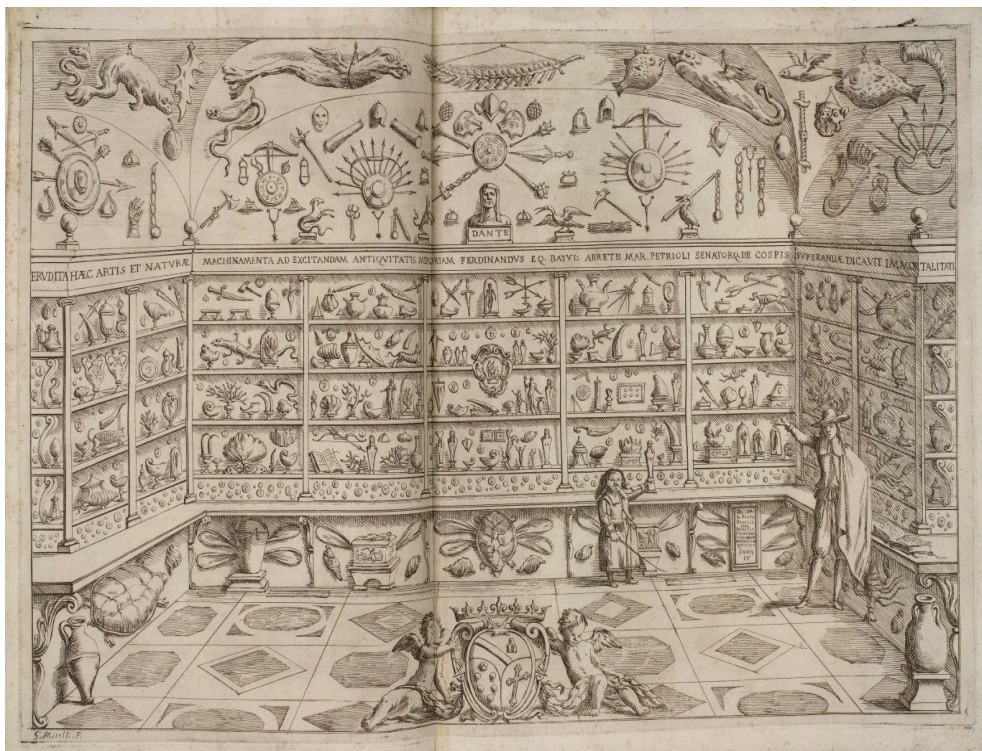 DANTE
ERVDITA HÆC ARTIS ET NATVRÆ MACHINAMENTA AD EXCITANDAM ANTIQVITATIS MEMORIAM FERDINANDVS EQ. BAYVL ARRETII MAR. PETRIOLI SENATORQ. DE COSPIS SVPERANDÆ DICAVIT IMMORTALITATI
G. Mitelli. F.